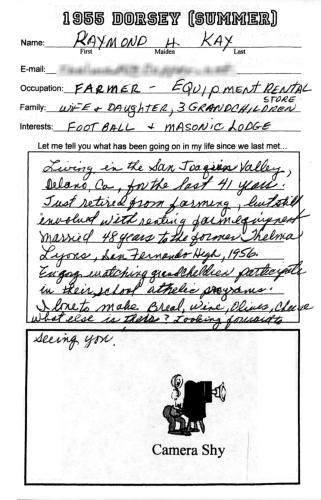 1955 DORSEY (SUMMER)
Name: RAYMOND H KAY
First Maiden Last
E-mail:
Occupation: FARMER - EQUIPMENT RENTAL STORE
Family: WIFE & DAUGHTER, 3 GRANDCHILDREN
Interests: FOOTBALL & MASONIC LODGE
Let me tell you what has been going on in my life since we last met...
Living in the San Joaquin Valley,
Delano, Ca, for the last 41 years.
Just retired from farming, but still
involved with renting farm equipment
Married 48 years to the former Thelma
Lyons, San Fernando High, 1956.
Enjoy watching grandchildren participate
in their school athletic programs.
I love to make Bread, Wine, Olives, Cheese
what else is there? Looking forward to
seeing you.
Camera Shy